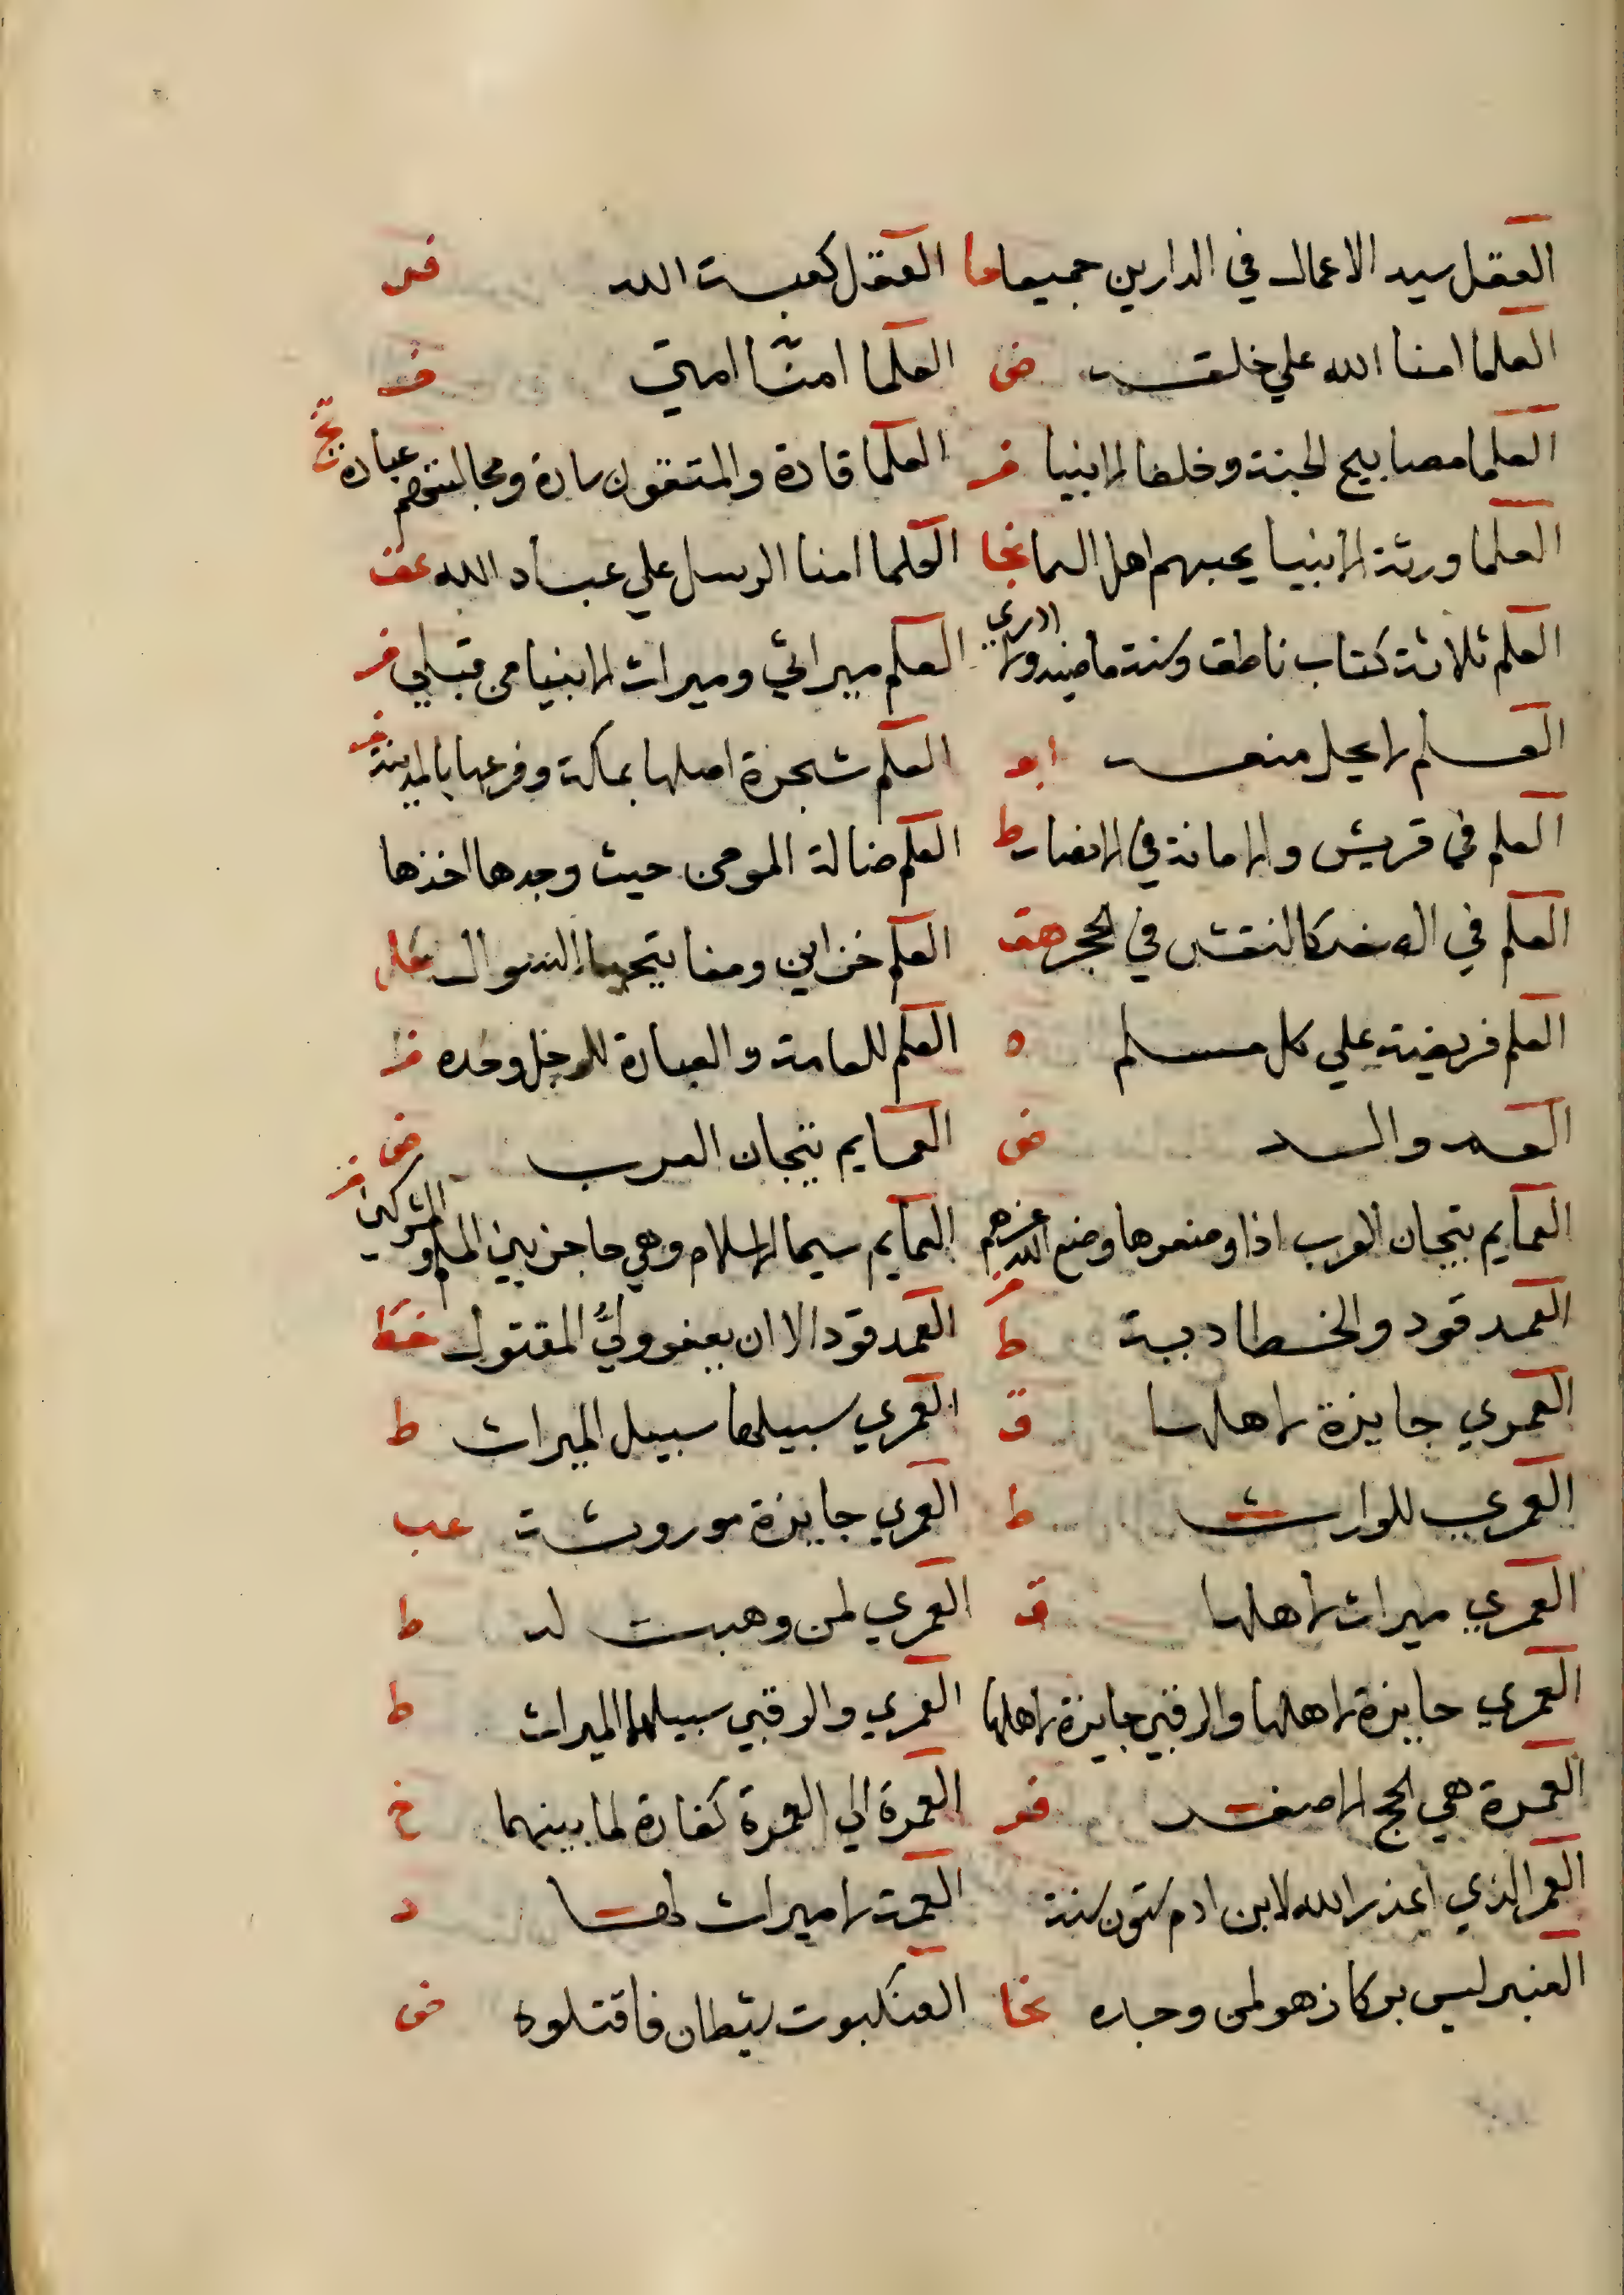 العقل سيد الاعمال في الدارين جميعا ما العقل كعبت الله فد
العلما امنا الله علي خلقه ض العلما امنا امتي فر
العلما مصابيح الجنة وخلفا الانبيا فر العلما قادة والمتقون سادة ومجالستهم عبادة
العلما ورثة الانبيا يحبهم اهل السما نجا العلما امنا الرسل علي عباد الله عق
العلم ثلاثة كتاب ناطق وسنة ماضيه ولا ادري العلم ميراثي وميراث الانبيا من قبلي فر
العلم لا يحل منعه ابو العلم شجرة اصلها بمكة وفرعها بالمدينة فر
العلم في قريش والامانة في الانصار ط العلم ضالة المومن حيث وجدها اخذها
العلم في الصغر كالنقش في الحجر هق العلم خزاين ومفاتيحها السوال عل
العلم فريضة علي كل مسلم ه العلم للعامة والعبادة للرجل وحده فر
ض العمايم تيجان العرب ض
العمايم تيجان العرب اذا وضعوها وضع الله عزهم فر العمايم سيما الاسلام وهي حاجز بين المسلم والمشركين فر
العمد قود والخطا دية ط العمد قود الا ان يعفو وليُّ المقتول خط
العمري جايزة لاهلها ق العمري سبيلها سبيل الميراث ط
العمري للوارث ط العمري جايزة موروثة عب
العمري ميراث لاهلها ق العمري لمن وهبت له ط
العمري جايزة لاهلها والرقبي جايزة لاهلها العمري والرقبي سبيلهما الميراث ط
العمرة هي الحج الاصغر فر العمرة الي العمرة كفارة لما بينهما خ
العمر الذي اعذر الله لابن ادم ستون سنة العمة لا ميراث لها د
العنبر ليس بركاز هو لمن وجده نجا العنكبوت شيطان فاقتلوه ض